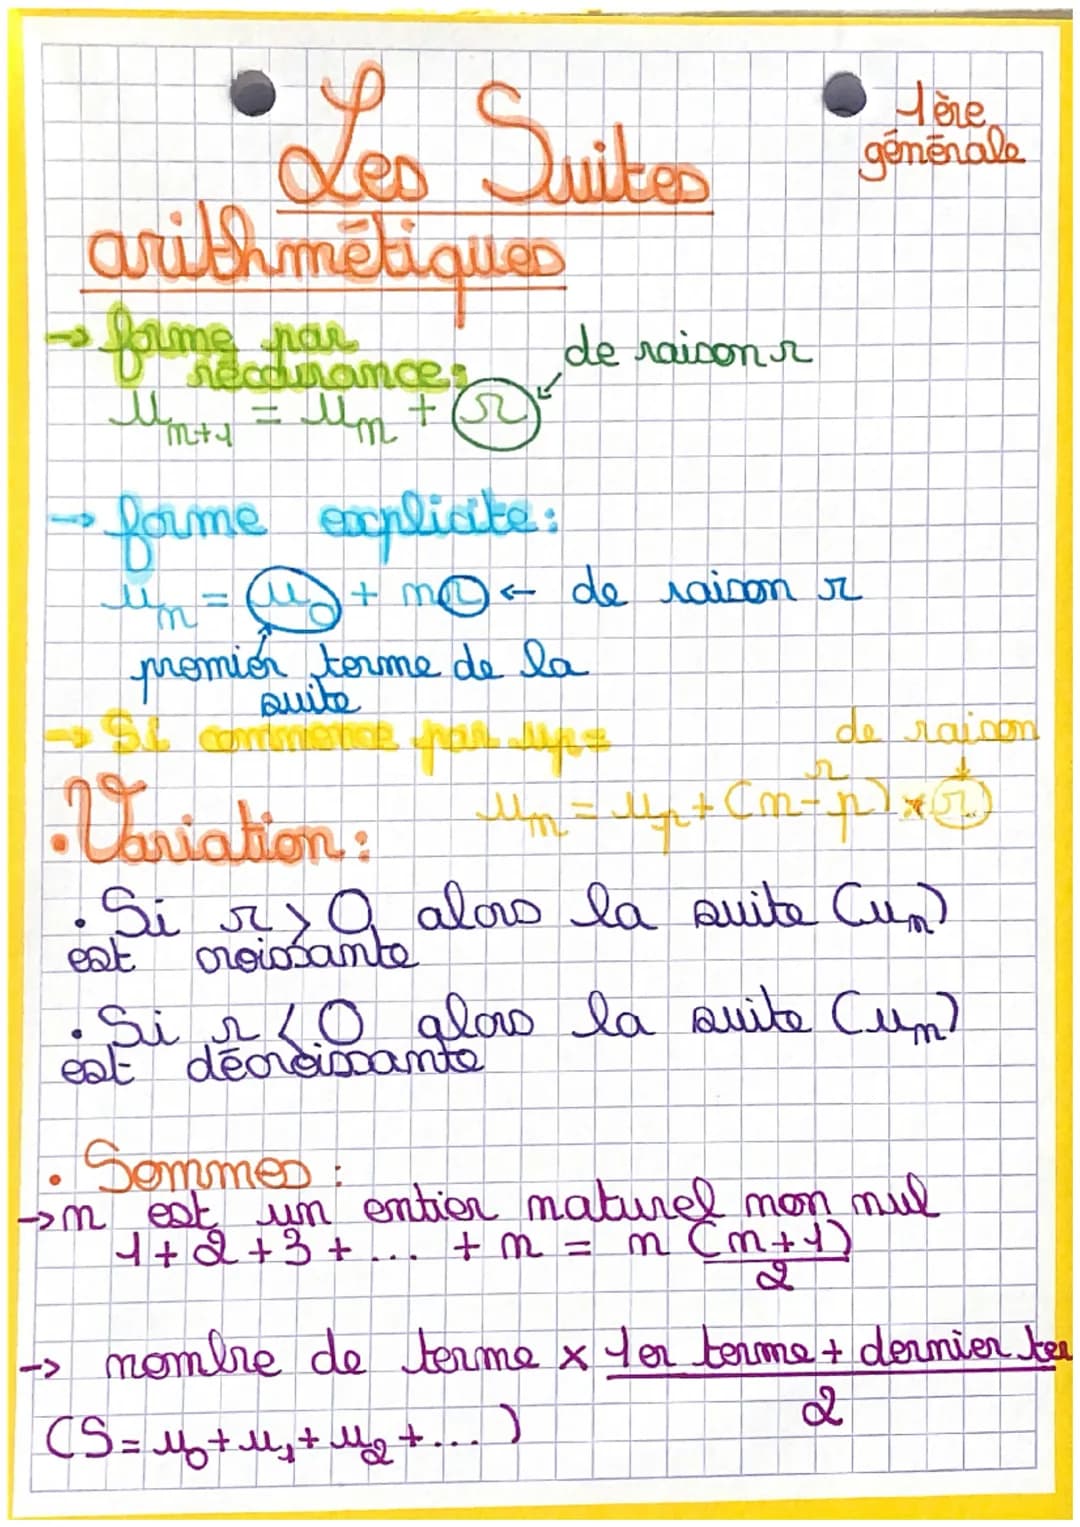 Les Suites
1ère
générale
arithmétiques
→ forme par
récurrance:
de raison r
u_{n+1} = u_n + r
→ forme explicite:
u_n = u_0 + nr ← de raison r
premier terme de la
suite
→ Si commence par up=
de raison
r
u_n = u_p + (n-p) × r
• Variation:
• Si r > 0 alors la suite (u_n)
est croissante
• Si r < 0 alors la suite (u_n)
est décroissante
• Sommes:
→ n est un entier naturel non nul
1 + 2 + 3 + ... + n = n (n+1)
2
→ nombre de terme × 1er terme + dernier ter
2
(S = u_0 + u_1 + u_2 + ... )